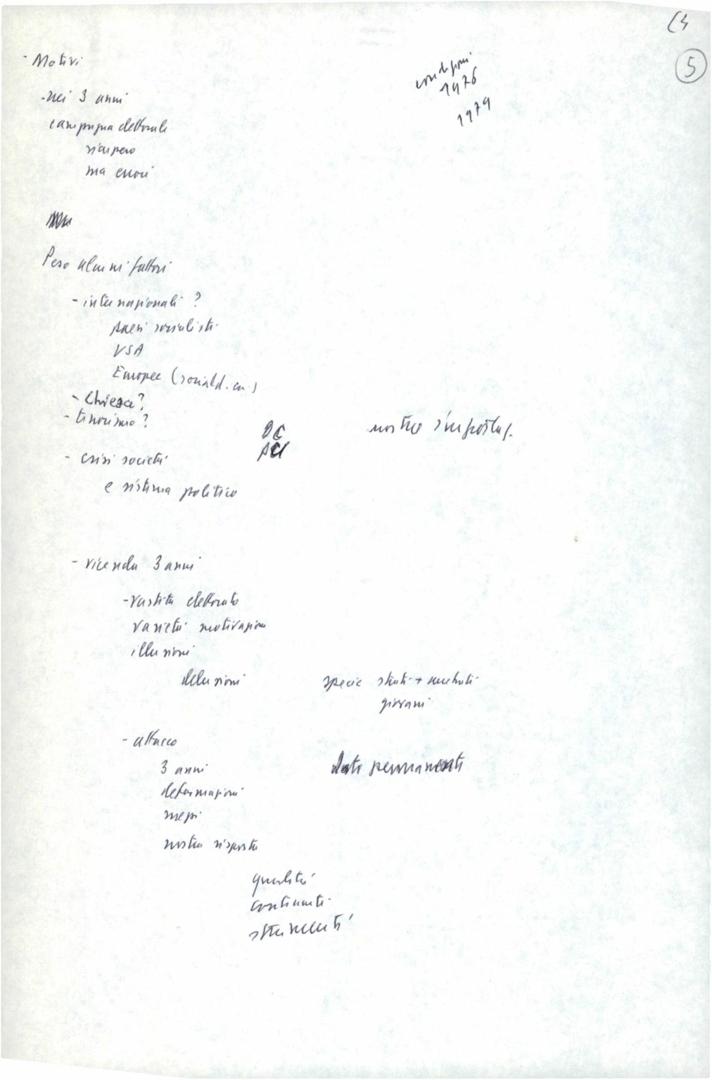 (4
5
- Motivi
condizioni
1976
1979
- nei 3 anni
campagna elettorale
recupero
ma errori
Però alcuni fattori
- internazionali ?
paesi socialisti
USA
Europee (sociald. ecc)
- Chiesa ?
- terrorismo ?
DC
PCI
nostra impostaz.
- crisi società
e sistema politico
- vicenda 3 anni
- vastità elettorato
varietà motivazioni
illusioni
delusioni
specie strati + 
giovani
- attacco
3 anni
dati permanenti
deformazioni
mezzi
nostra risposta
qualità
continuità
strumenti